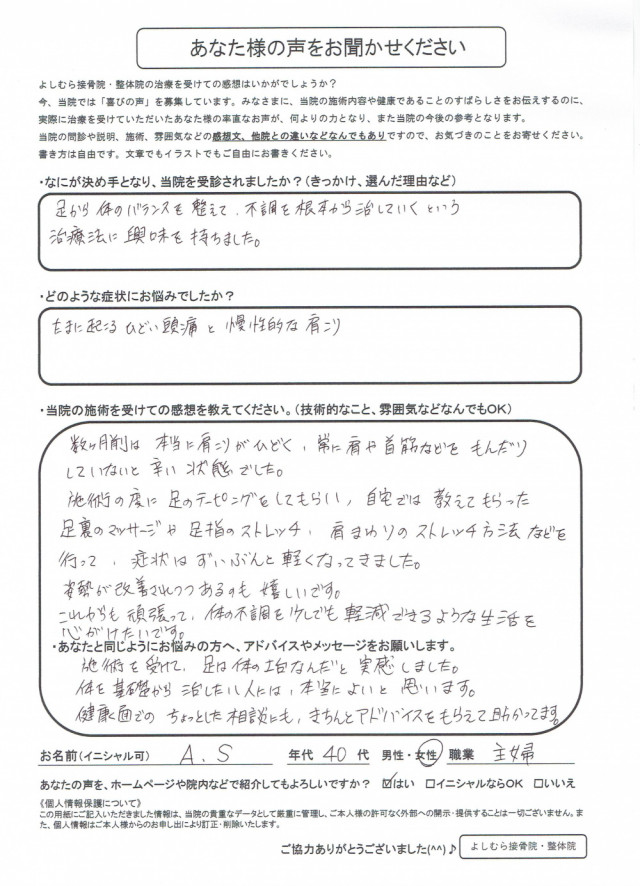 あなた様の声をお聞かせください
よしむら接骨院・整体院の治療を受けての感想はいかがでしょうか？
今、当院では「喜びの声」を募集しています。みなさまに、当院の施術内容や健康であることのすばらしさをお伝えするのに、
実際に治療を受けていただいたあなた様の率直なお声が、何よりの力となり、また当院の今後の参考となります。
当院の問診や説明、施術、雰囲気などの感想文、他院との違いなどなんでもありですので、お気づきのことをお寄せください。
書き方は自由です。文章でもイラストでもご自由にお書きください。
・なにが決め手となり、当院を受診されましたか？（きっかけ、選んだ理由など）
足から体のバランスを整えて、不調を根本から治していくという
治療法に興味を持ちました。
・どのような症状にお悩みでしたか？
たまに起こるひどい頭痛と慢性的な肩こり
・当院の施術を受けての感想を教えてください。（技術的なこと、雰囲気などなんでもOK）
数ヶ月前は本当に肩こりがひどく、常に肩や首筋などをもんだり
していないと辛い状態でした。
施術の度に足のテーピングをしてもらい、自宅では教えてもらった
足裏のマッサージや足指のストレッチ、肩まわりのストレッチ方法などを
行って、症状はずいぶんと軽くなってきました。
姿勢が改善されつつあるのも嬉しいです。
これからも頑張って、体の不調を少しでも軽減できるような生活を
心がけたいです。
・あなたと同じようにお悩みの方へ、アドバイスやメッセージをお願いします。
施術を受けて、足は体の土台なんだと実感しました。
体を基礎から治したい人には、本当によいと思います。
健康面でのちょっとした相談にも、きちんとアドバイスをもらえて助かってます。
お名前（イニシャル可） A.S 年代 40 代 男性・女性 職業 主婦
あなたの声を、ホームページや院内などで紹介してもよろしいですか？ ☑はい □イニシャルならOK □いいえ
《個人情報保護について》
この用紙にご記入いただきました情報は、当院の貴重なデータとして厳重に管理し、ご本人様の許可なく外部への開示・提供することは一切ございません。ま
た、個人情報はご本人様からのお申し出により訂正・削除いたします。
ご協力ありがとうございました(^^)♪ よしむら接骨院・整体院